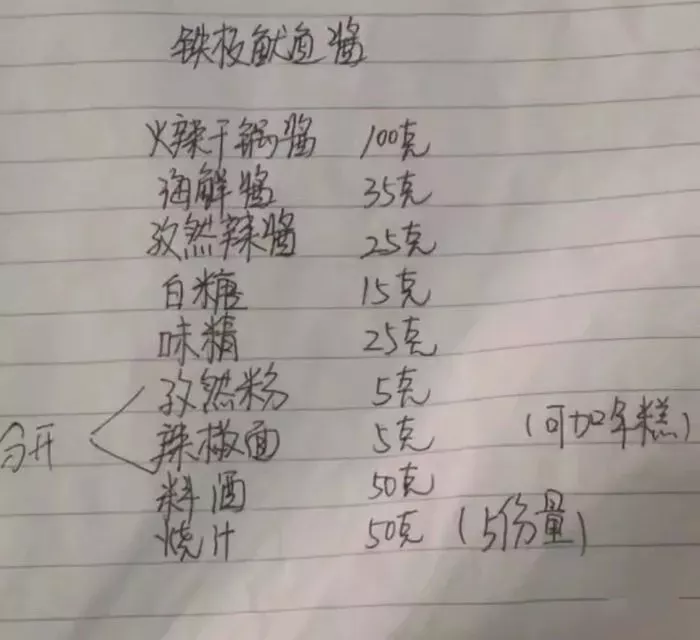 铁板鱿鱼醬
火辣干锅醬 100克
海鲜醬 35克
孜然辣醬 25克
白糖 15克
味精 25克
孜然粉 5克
分开 辣椒面 5克 (可加年糕)
料酒 50克
烧汁 50克 (5份量)